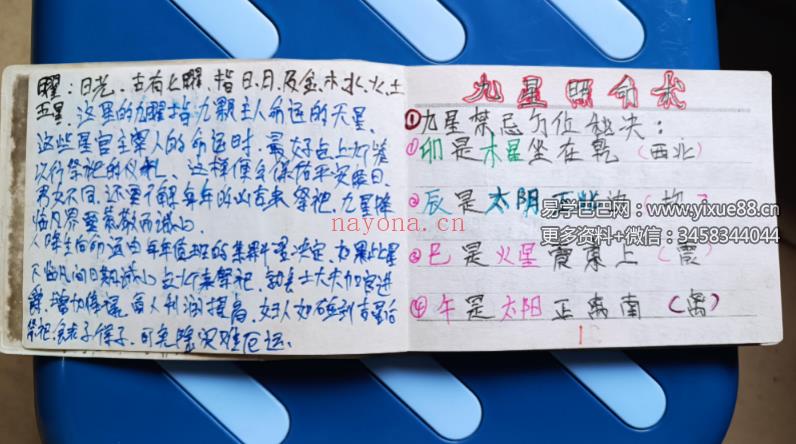 曜：日光，古有七曜，指日、月、及金、木、水、火、土
五星，这里的九曜指九颗主人命运的天星，
这些星宫主宰人的命运时，最好点上灯举
以行祭祀的仪礼，这样便会保佑平安暖日，
男女不同，还要了解每年的凶吉来祭祀，九星降
临凡界要恭敬而诚心
人降生后命运由每年值班的
不临凡间日期诚心点灯来祭祀，士大夫加官进
爵，增加俸禄，商人利润提高，妇人如碰到吉星后
祭祀，可免除灾难厄运。
九星照命术
①九星禁忌方位秘决：
①卯是木星坐在乾（西北）
②辰是太阴正
③巳是火星震东上（震）
④午是太阳正离南（离）
1
nayona.cn
易学巴巴网：www.yixue88.cn
更多资料+微信：3458344044